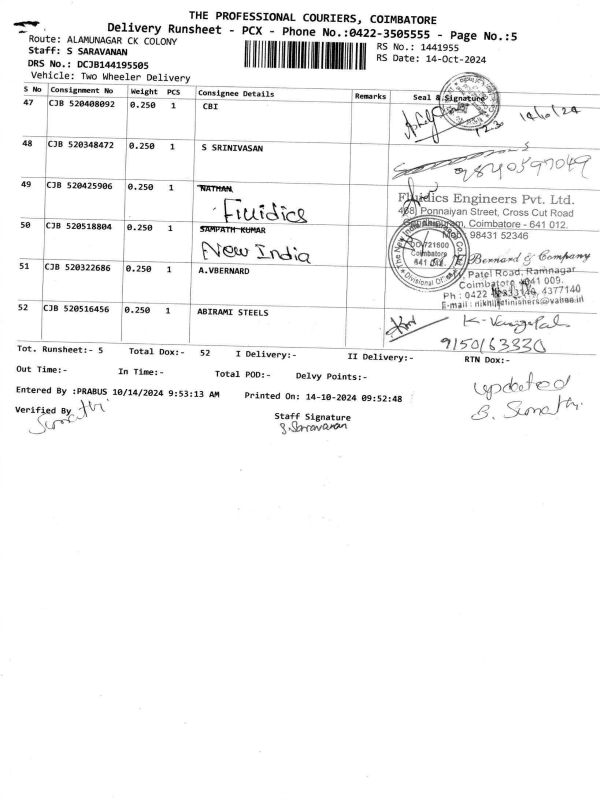 THE PROFESSIONAL COURIERS, COIMBATORE
Delivery Runsheet - PCX - Phone No.:0422-3505555 - Page No.:5
Route: ALAMUNAGAR CK COLONY
RS No.: 1441955
Staff: S SARAVANAN
RS Date: 14-Oct-2024
DRS No.: DCJB144195505
Vehicle: Two Wheeler Delivery
S No Consignment No Weight PCS Consignee Details Remarks Seal & Signature
47 CJB 520408092 0.250 1 CBI
14/10/24
48 CJB 520348472 0.250 1 S SRINIVASAN
9840597049
49 CJB 520425906 0.250 1 NATHAN,
Fluidics
Fluidics Engineers Pvt. Ltd.
468, Ponnaiyan Street, Cross Cut Road
Gandhipuram, Coimbatore - 641 012.
Mob: 98431 52346
50 CJB 520518804 0.250 1 SAMPATH KUMAR
New India
The New India
DO-721600
Coimbatore
641 012
Divisional Of
51 CJB 520322686 0.250 1 A.VBERNARD
Bernard & Company
Patel Road, Ramnagar
Coimbatore - 641 009.
Ph : 0422 4377140
52 CJB 520516456 0.250 1 ABIRAMI STEELS
9150163330
Tot. Runsheet:- 5 Total Dox:- 52 I Delivery:- II Delivery:- RTN Dox:-
Out Time:- In Time:- Total POD:- Delvy Points:-
updated
S. Sumathi.
Entered By :PRABUS 10/14/2024 9:53:13 AM Printed On: 14-10-2024 09:52:48
Verified By
Sumathi
Staff Signature
S. Saravanan